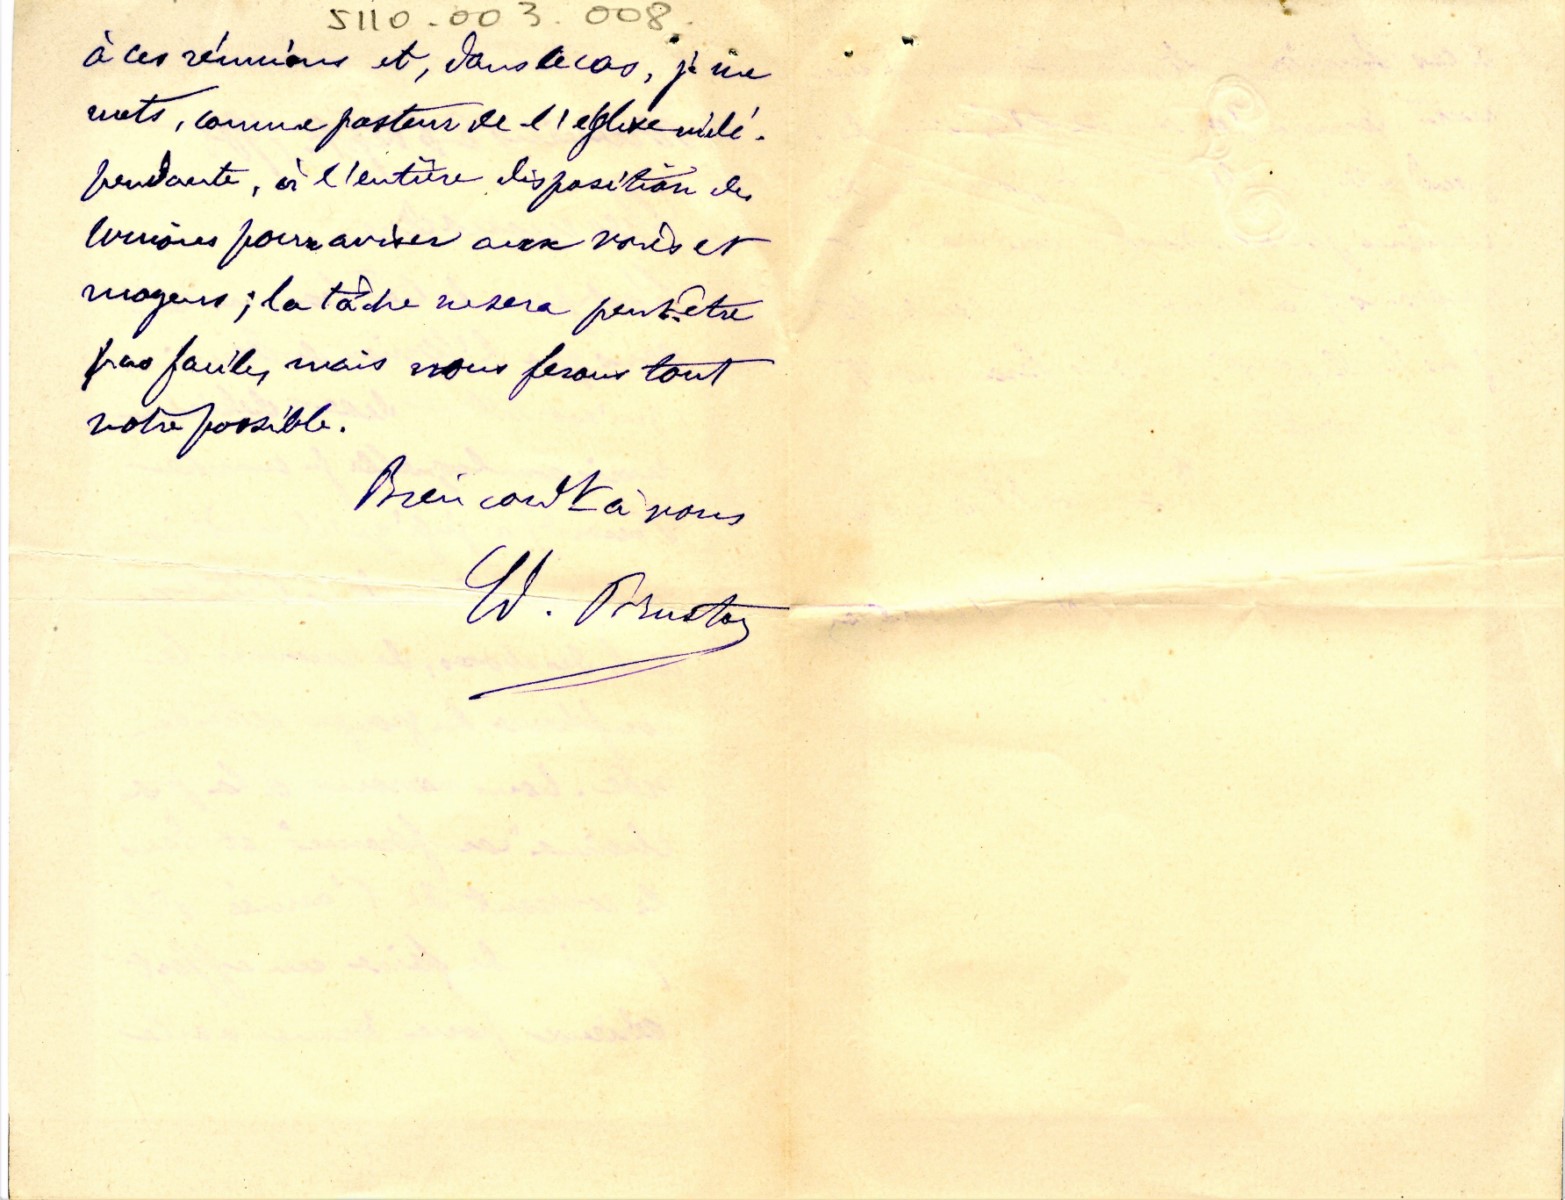 5110.003.008.
à ces réunions et, dans le cas, je me
mets, comme pasteur de l'église indé-
pendante, à l'entière disposition des
pour aviser aux voies et
moyens ; la tâche ne sera peut-être
pas facile, mais nous ferons tout
notre possible.
Bien cordt à vous
Ed. Bruston